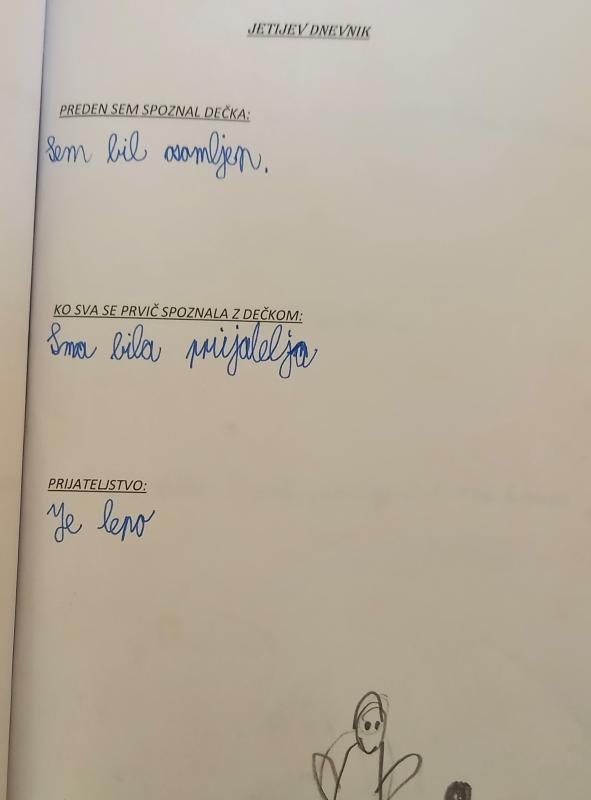 JETIJEV DNEVNIK
PREDEN SEM SPOZNAL DEČKA:
Sem bil osamljen.
KO SVA SE PRVIČ SPOZNALA Z DEČKOM:
Sma bila prijatelja
PRIJATELJSTVO:
Je lepo